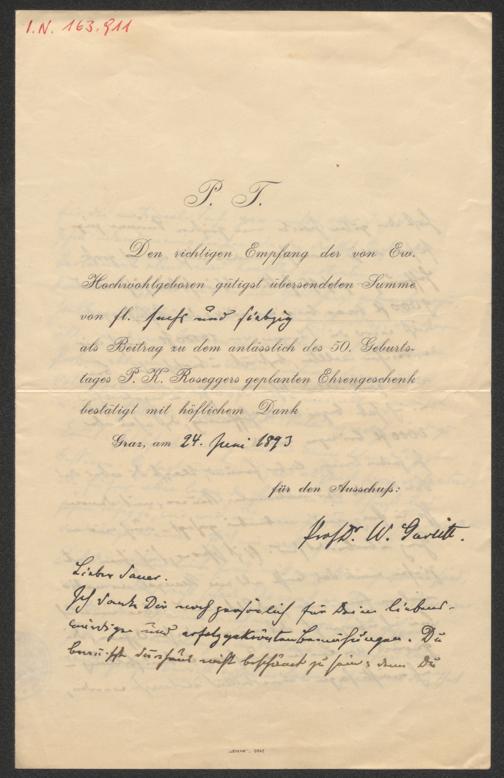 I.N. 163.911
P. T.
Den richtigen Empfang der von Ew.
Hochwohlgeboren gütigst übersendeten Summe
von fl. sechs und siebzig
als Beitrag zu dem anlässlich des 50. Geburts-
tages P. K. Roseggers geplanten Ehrengeschenk
bestätigt mit höflichem Dank
Graz, am 24. Juni 1893
für den Ausschuß:
Prof Dr. W. Gurlitt.
Lieber Sauer.
Ich danke Dir noch persönlich für Deine liebens-
würdigen und erfolggekrönten Bemühungen. Du
brauchst durchaus nicht beschämt zu sein; denn Du